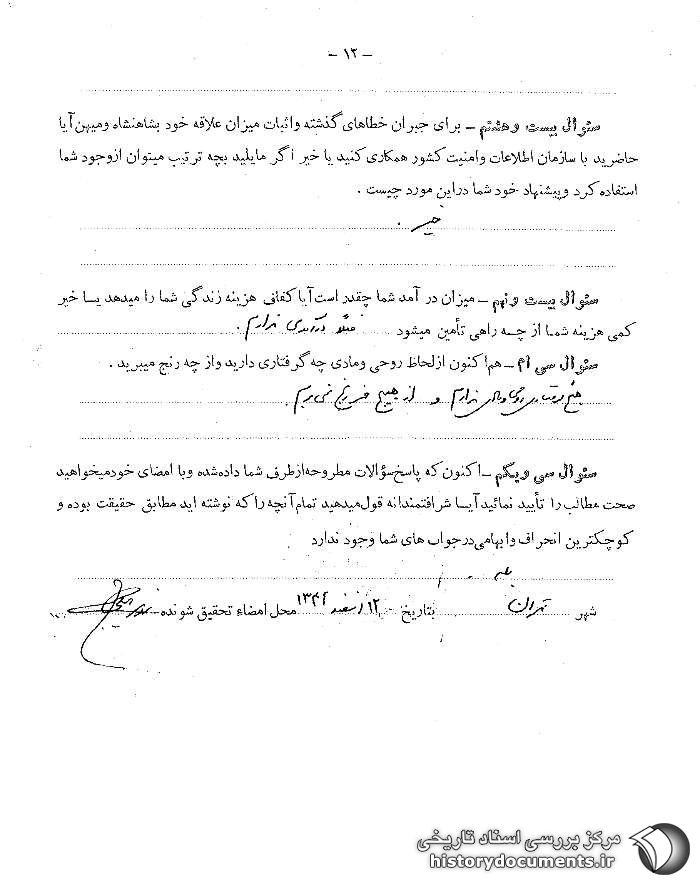 - ۱۲ -
سئوال بیست و هشتم - برای جبران خطاهای گذشته واثبات میزان علاقه خود بشاهنشاه ومیهن آیا
حاضرید با سازمان اطلاعات وامنیت کشور همکاری کنید یا خیر اگر مایلید بچه ترتیب میتوان ازوجود شما
استفاده کرد وپیشنهاد خود شما دراین مورد چیست .
خیر .
سئوال بیست و نهم - میزان در آمد شما چقدر است آیا کفاف هزینه زندگی شما را میدهد یا خیر
کمی هزینه شما از چه راهی تأمین میشود فعلا درآمدی ندارم .
سئوال سی ام - هم اکنون از لحاظ روحی ومادی چه گرفتاری دارید واز چه رنج میبرید .
هیچ گرفتاری روحی و مادی ندارم و از هیچ رنج نمی برم .
سئوال سی و یکم - اکنون که پاسخ سؤالات مطروحه از طرف شما داده شده وبا امضای خود میخواهید
صحت مطالب را تأیید نمائید آیا شرافتمندانه قول میدهید تمام آنچه را که نوشته اید مطابق حقیقت بوده و
کوچکترین انحراف وابهامی در جواب های شما وجود ندارد
بله .
شهر تهران بتاریخ ۱۲ اسفند محل امضاء تحقیق شونده
مرکز بررسی اسناد تاریخی
historydocuments.ir